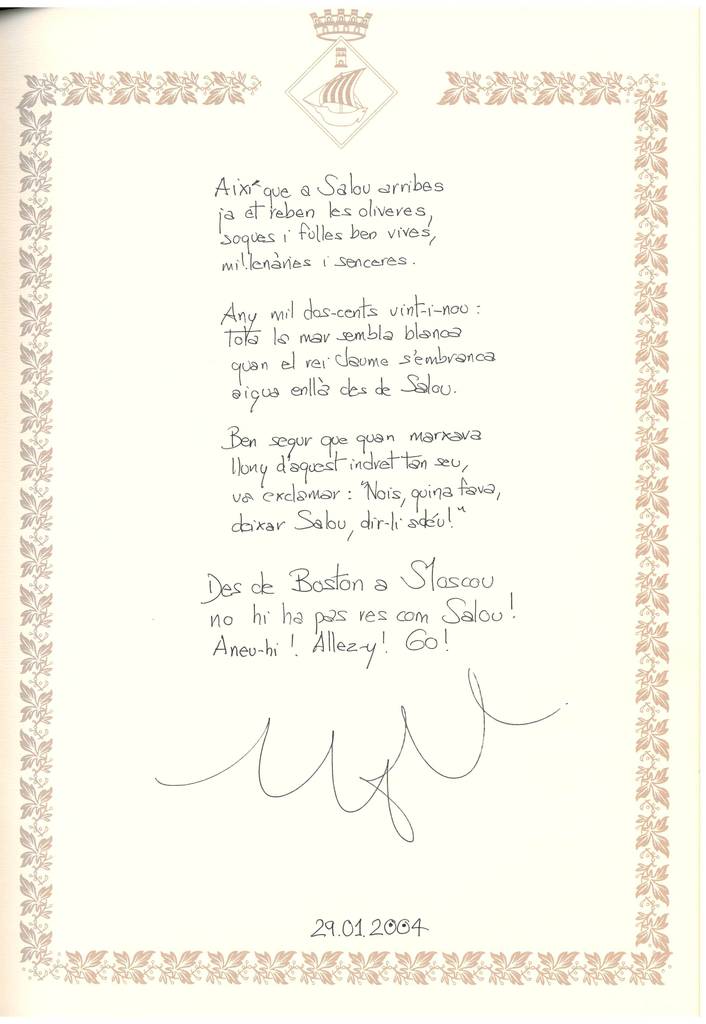 Així que a Salou arribes
ja et reben les oliveres,
soques i fulles ben vives,
mil·lenàries i senceres.
Any mil dos-cents vint-i-nou:
tota la mar sembla blanca
quan el rei Jaume s'embranca
aigua enllà des de Salou.
Ben segur que quan marxava
lluny d'aquest indret tan seu,
va exclamar: "Nois, quina fava,
deixar Salou, dir-li adéu!"
Des de Boston a Moscou
no hi ha pas res com Salou!
Aneu-hi! Allez-y! Go!
29.01.2004